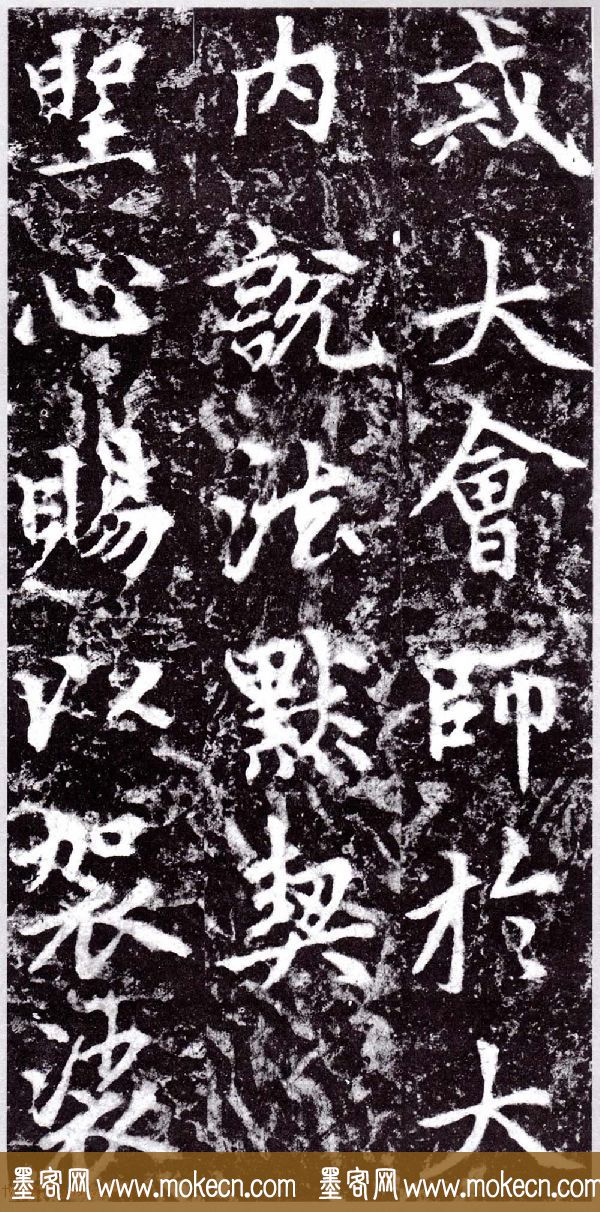 戒大會師於大
内說法默契
聖心賜以袈裟
墨客网 www.mokecn.com 墨客网 www.mokecn.com